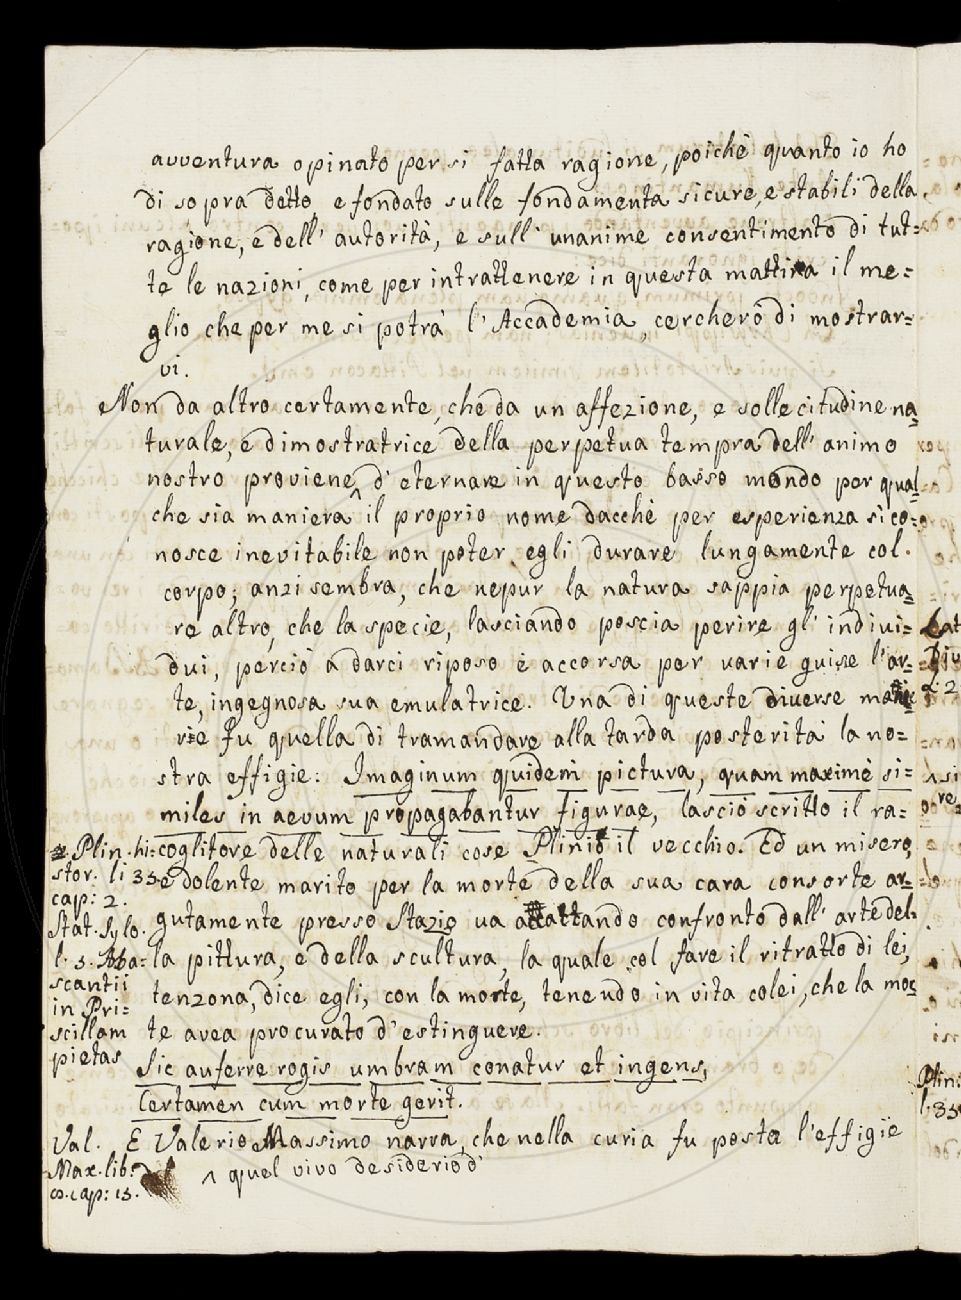 avventura opinato per sì fatta ragione, poichè quanto io ho
di sopra detto e fondato sulle fondamenta sicure, e stabili della
ragione, e dell' autorità, e sull' unanime consentimento di tut=
te le nazioni, come per intrattenere in questa mattina il me=
glio che per me si potrà l'Accademia, cercherò di mostrar=
vi.
Non da altro certamente, che da un affezione, e sollecitudine na=
turale, e dimostratrice della perpetua tempra dell' animo
nostro proviene ^ d' eternare in questo basso mondo per qual=
che sia maniera il proprio nome dacchè per esperienza si co=
nosce inevitabile non poter egli durare lungamente col
corpo; anzi sembra, che nepur la natura sappia perpetua=
re altro, che la specie, lasciando poscia perire gl' indivi=
dui, perciò a darci riposo è accorsa per varie guise l'ar=
te, ingegnosa sua emulatrice. Una di queste diverse
rie fu quella di tramandare alla tarda posterità la no=
stra effigie: Imaginum quidem pictura, quam maximè si=
miles in aevum propagabantur figurae, lasciò scritto il ra=
coglitore delle naturali cose Plinio il vecchio. Ed un misero,
e dolente marito per la morte della sua cara consorte ar=
gutamente presso Stazio va adattando confronto dall' arte del=
la pittura, e della scultura, la quale col fare il ritratto di lei,
tenzona, dice egli, con la morte, tenendo in vita colei, che la mor=
te avea procurato d'estinguere.
Sic auferre rogis umbram conatur et ingens,
Certamen cum morte gerit.
E Valerio Massimo narra, che nella curia fu posta l'effigie
^ quel vivo desiderio d'
Plin. hi=
stor. li 35
cap: 2.
Stat. Sylv.
l. 5. Aba=
scantii
in Pri=
scillam
pietas
Val.
Max. lib:
8. cap: 15.